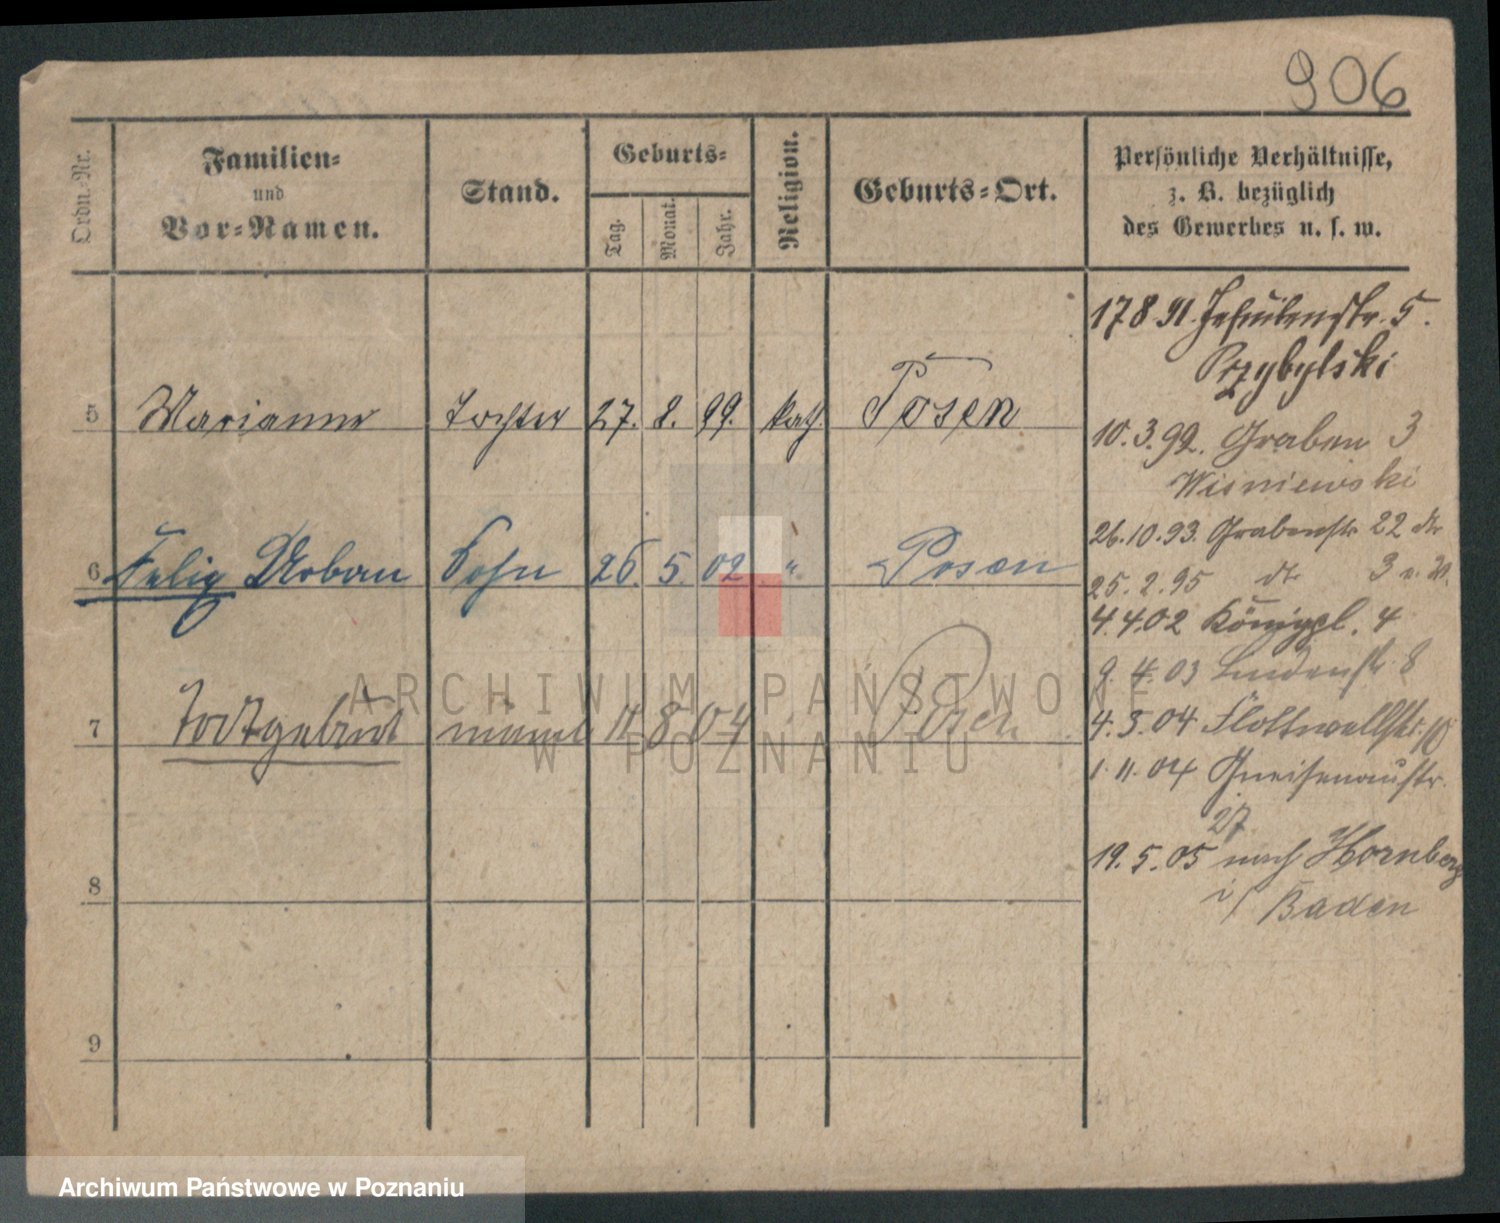 906
Ordn.-Nr.
Familien-
und
Vor-Namen.
Stand.
Geburts-
Tag.
Monat.
Jahr.
Religion.
Geburts-Ort.
Persönliche Verhältnisse,
z. B. bezüglich
des Gewerbes u. s. w.
5 Marianne Tochter 27. 8. 99. kath. Posen
6 Felix Urban Sohn 26. 5. 02 " Posen
7 Todtgeburt männl 11 8 04 Posen
8
9
17 8 91. Jesuitenstr. 5.
Przybylski
10. 3. 92. Graben 3
Wisniewski
26. 10. 93. Grabenstr 22
25. 2. 95 3
4. 4. 02 Königpl. 4
9. 4. 03 Lindenstr 8
4. 3. 04 Flottwellstr. 10
1. 11. 04 Gneisenaustr.
27
19. 5. 05 nach Hornberg
i/ Baden
ARCHIWUM PAŃSTWOWE
W POZNANIU
Archiwum Państwowe w Poznaniu